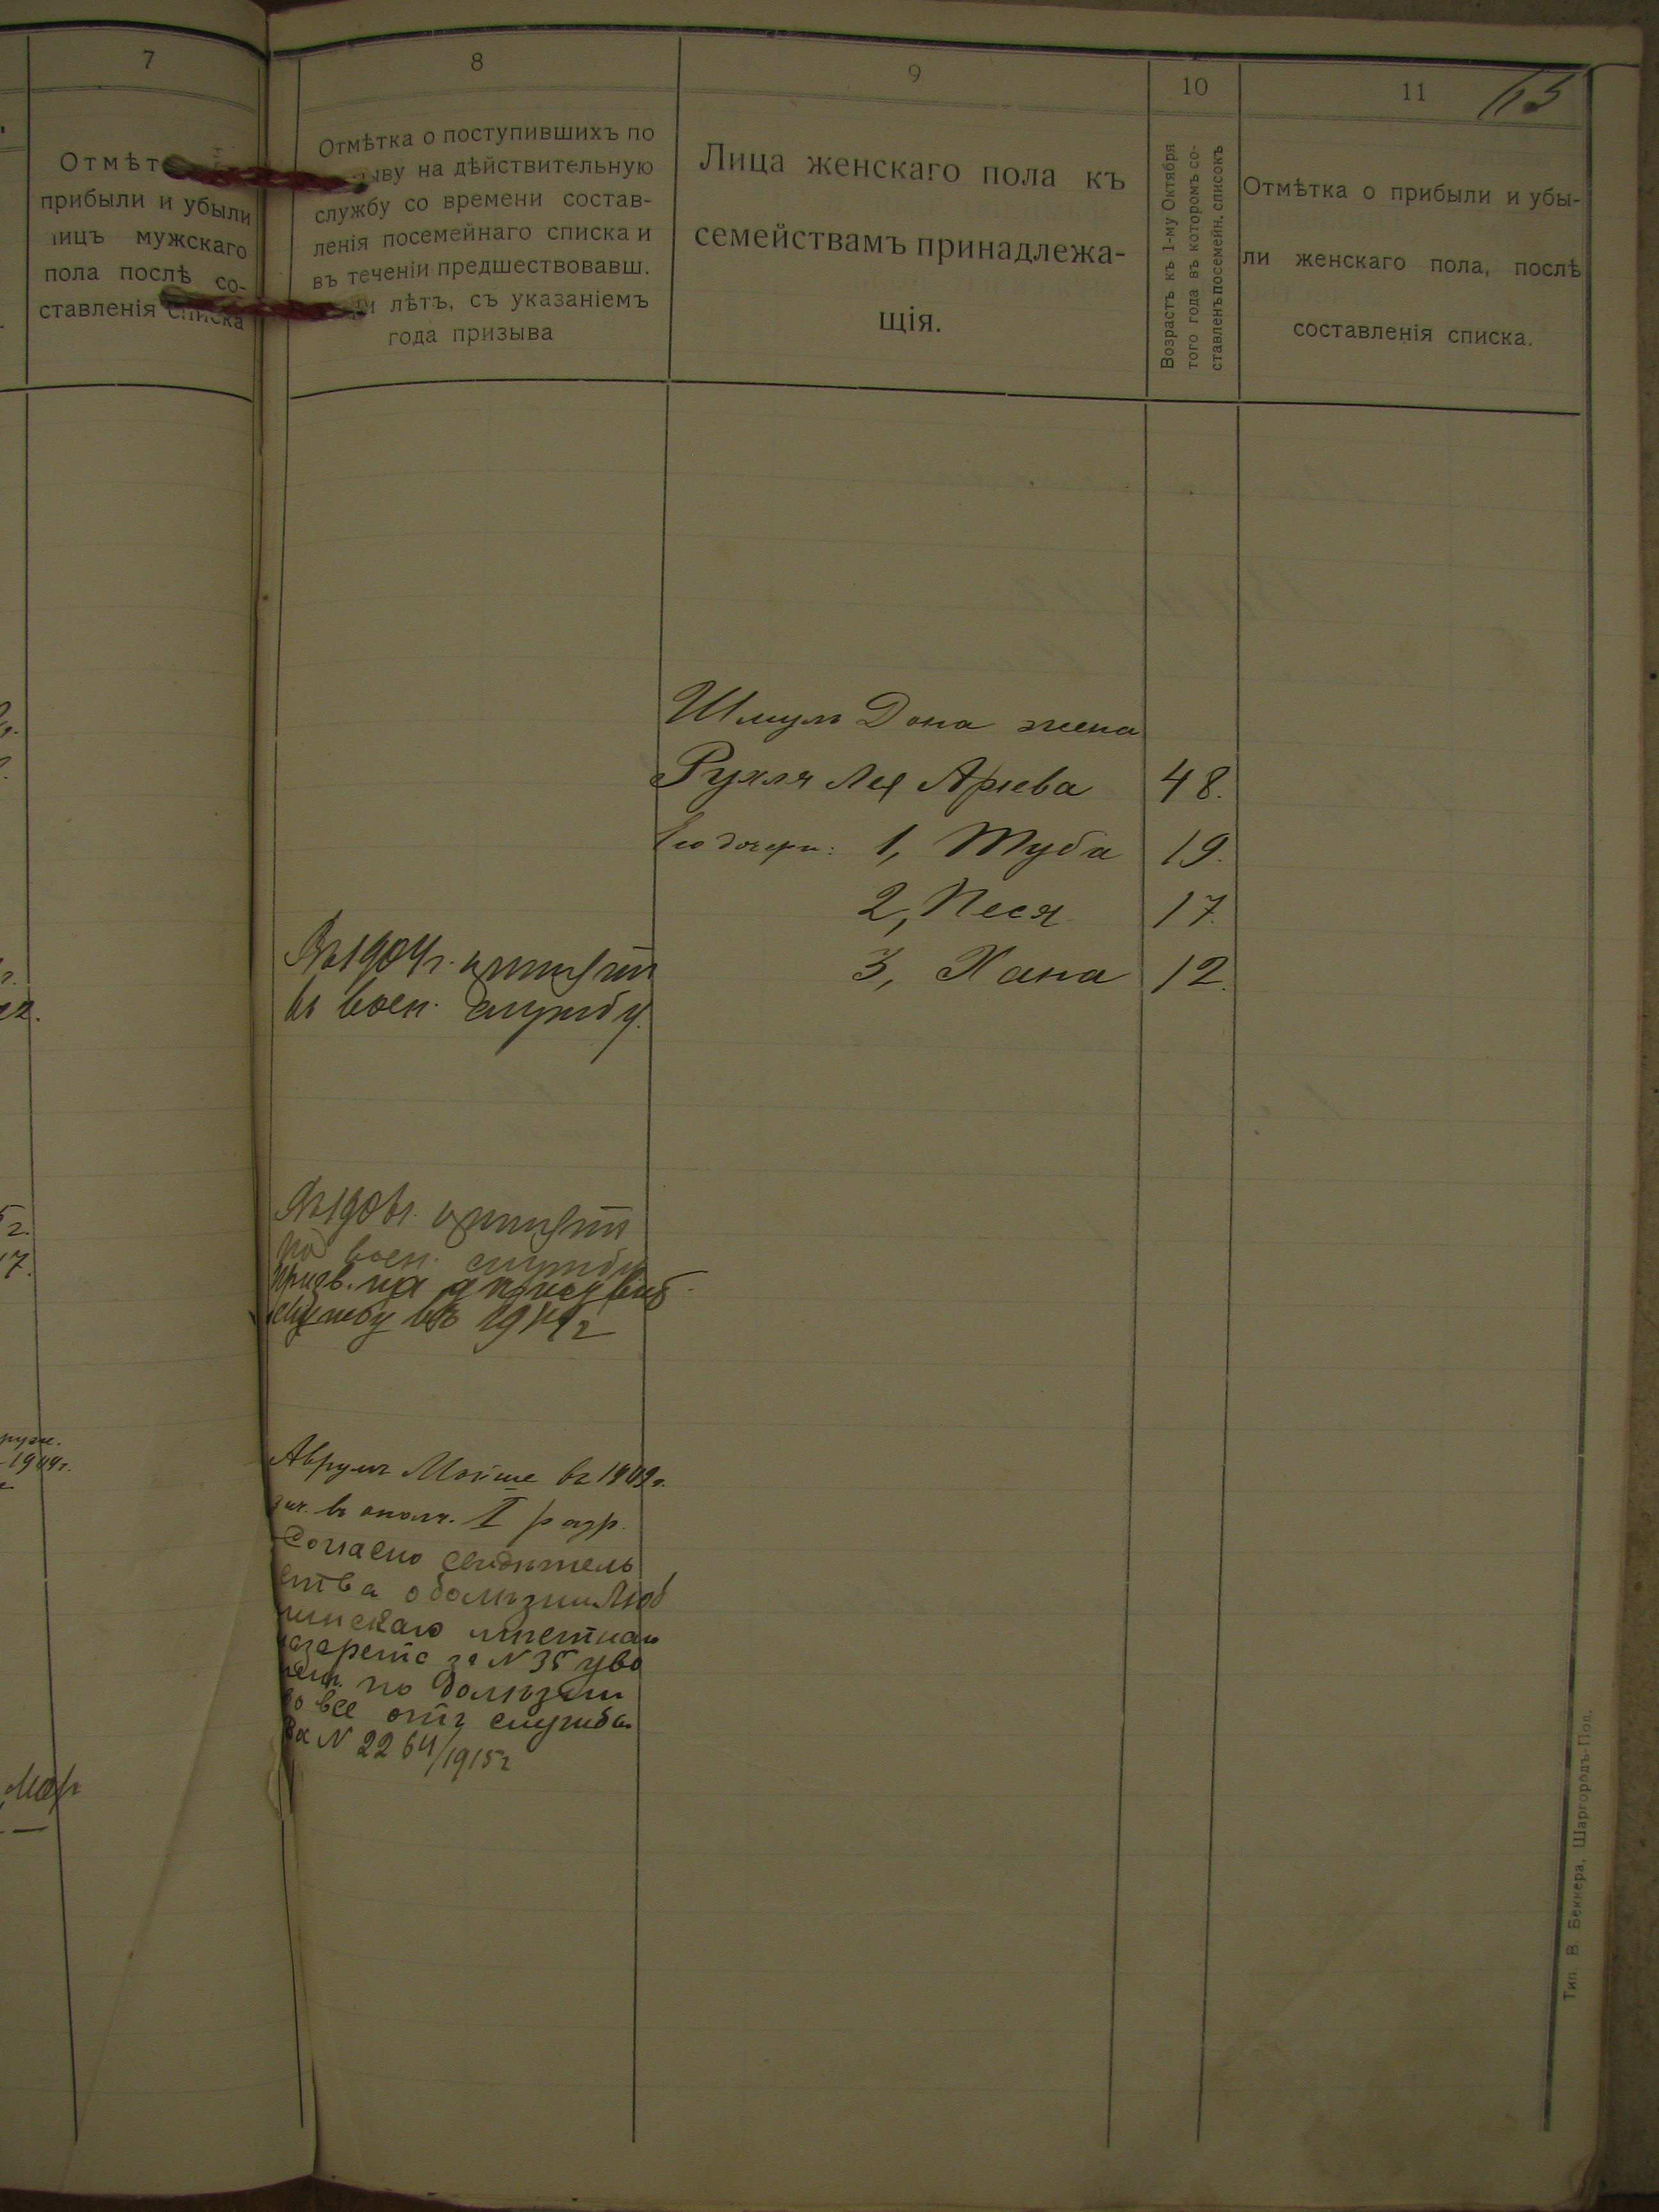 7
Отмѣт
прибыли и убыли
лицъ мужскаго
пола послѣ со-
ставленія списка
8
Отмѣтка о поступившихъ по
ыву на дѣйствительную
службу со времени состав-
ленія посемейнаго списка и
въ теченіи предшествовавш.
и лѣтъ, съ указаніемъ
года призыва
9
Лица женскаго пола къ
семействамъ принадлежа-
щія.
10
Возрастъ къ 1-му Октября
того года въ которомъ со-
ставленъ посемейн. списокъ
11
Отмѣтка о прибыли и убы-
ли женскаго пола, послѣ
составленія списка.
Шмуль Дона жена
Рухля Лея Арıева 48.
Его дочери: 1, Туба 19.
2, Песя 17.
3, Хана 12.
Въ 1904 г. принятъ
въ воен. службу.
принятъ
воен. службу
призв. на
службу въ 19
Аврумъ Мойше въ 1909 г.
зач. въ ополч. I разр.
Согласно свидѣтель
ства о болѣзни Люб
линскаго мѣстнаго
лазарета за N 35 уво
лен. по болѣзни
во все отъ службы
За N 2264/1915 г
Тип. В. Беккера, Шаргородъ-Под.